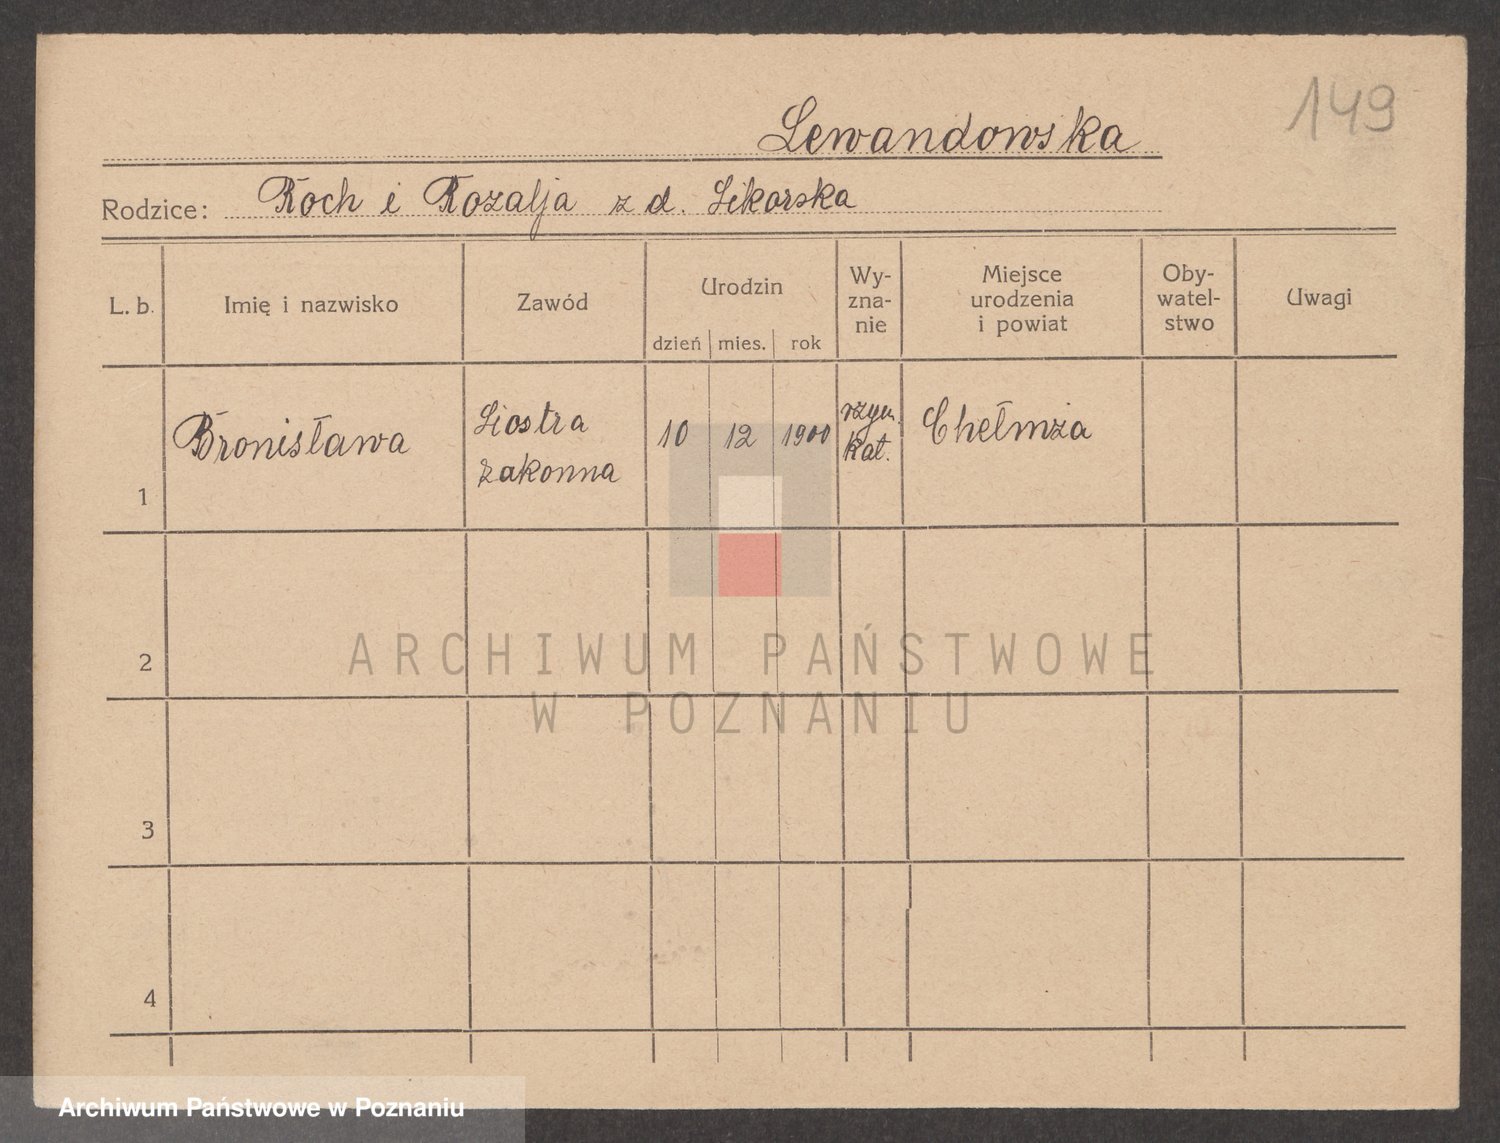 149
Lewandowska
Rodzice: Roch i Rozalja z d. Sikorska
L. b. Imię i nazwisko Zawód Urodzin dzień mies. rok Wy-zna-nie Miejsce urodzenia i powiat Oby-watel-stwo Uwagi
1 Bronisława Siostra zakonna 10 12 1900 rzym. kat. Chełmża
2
ARCHIWUM PAŃSTWOWE
W POZNANIU
3
4
Archiwum Państwowe w Poznaniu